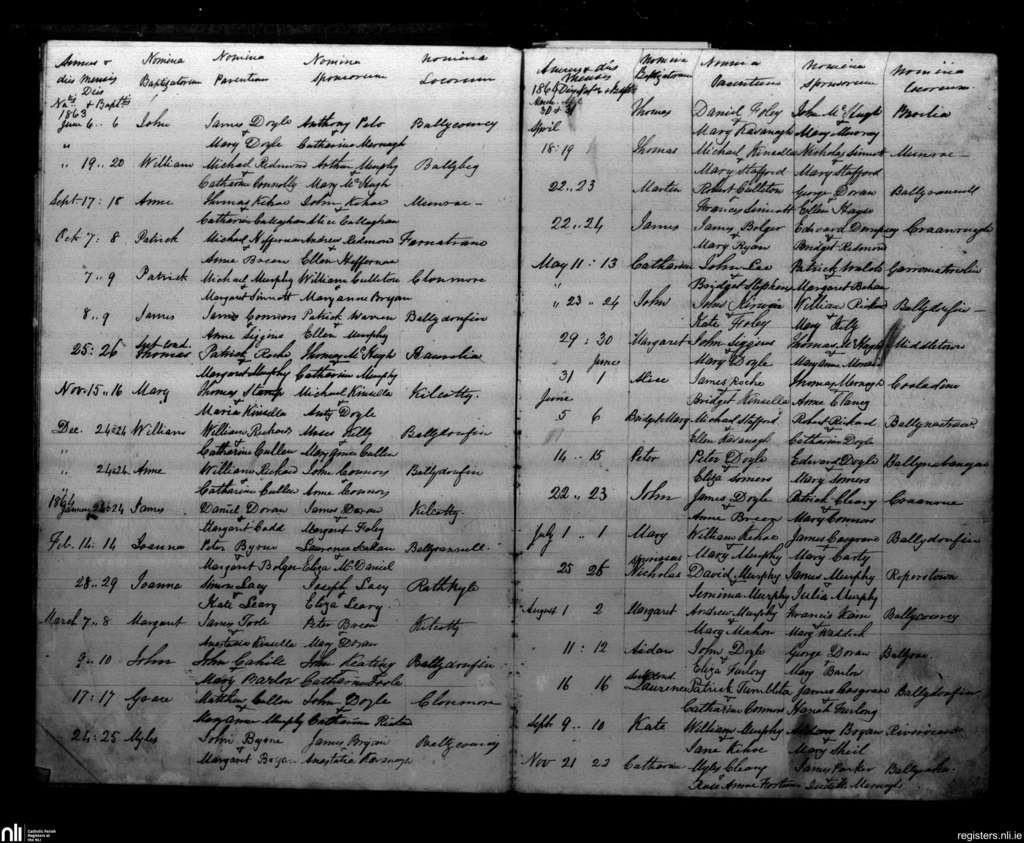 Annus & Nomina Nomina Nomina Nomina
dies Mensis Baptizatorum Parentum Sponsorum Locorum
Dies
Nat. & Baptis
1863
June 6 .. 6 John James Doyle Anthony Ballyconrey
" Mary Doyle Catharine Mernagh
" 19 .. 20 William Michael Redmond Arthur Murphy Ballybeg
Catharine Connolly Mary McHugh
Sept. 17 : 18 Anne Thomas Kehoe John Kehoe Munroe
Catharine Callaghan Alice Callaghan
Oct 7 : 8 Patrick Michael Heffernan Andrew Redmond
Anne Breen Ellen Heffernan
7 .. 9 Patrick Michael Murphy William Culliton Clonmore
Margaret Sinnott Maryanne Bryan
8 .. 9 James James Connors Patrick Warren Ballydonfin
Anne Siggins Ellen Murphy
25 : 26 Thomas Patrick Roche Thomas McHugh
Margaret Murphy Catharine Murphy
Nov. 15 .. 16 Mary Thomas Stamp Michael Kinsella Kilcotty.
Maria Kinsella Anty Doyle
Dec. 24 : 24 William William Moses Kelly Ballydonfin
Catharine Cullen Cullen
" 24 : 24 Anne William John Connors Ballydonfin
Catharine Cullen Anne Connors
1864
24 : 24 James Daniel Doran James Doran Kilcotty.
Margaret Codd Margaret Foley
Feb. 14 : 14 Joanna Peter Byrne Lawrence
Margaret Bolger Eliza McDaniel
28 .. 29 Joanna Simon Lacy Joseph Lacy Rathkyle
Kate Leary Eliza Leary
March 7 .. 8 Margaret James Toole Peter Breen Kilcotty
Anastasia Kinsella Mary Doran
9 .. 10 John John Cahill John Keating Ballydonfin
Mary Barlow Catharine Toole
17 : 17 Grace Matthew Cullen John Doyle Clonmore
Mary Anne Murphy Catharine
24 : 25 Myles John Byrne James Bryan Ballyconrey
Margaret Bryan Anastatia Kavanagh
Annus & dies Nomina Nomina Nomina Nomina
Mensis Baptizatorum Parentum Sponsorum Locorum
1864
30 & 31 Thomas Daniel Foley John McHugh
April Mary Kavanagh Mary Mooney
18 : 19 Thomas Michael Kinsella Nicholas Sinnott Munroe
Mary Stafford Mary Stafford
22 .. 23 Martin Robert Culliton George Doran
Frances Sinnott Ellen Hayes
22 .. 24 James James Bolger Edward Dempsey
Mary Ryan Bridget Redmond
May 11 : 13 Catharine John Lee Patrick Walsh
Bridget Stephens Margaret Bohan
" 23 .. 24 John John Kirwin William Ballydonfin
Kate Foley Mary Kelly
29 : 30 Margaret John Siggins Thomas McHugh Middletown
June Mary Doyle Mary Anne
31 1 Alice James Roche Thomas Mernagh Cooladine
June Bridget Kinsella Anne Clancy
5 6 Bridget Mary Michael Stafford Robert
Ellen Kavanagh Catharine Doyle
14 .. 15 Peter Peter Doyle Edward Doyle
Eliza Somers Mary Somers
22 .. 23 John James Doyle Patrick Cleary
Anne Breen Mary Connors
July 1 .. 1 Mary William Kehoe James Cosgrave Ballydonfin
Mary Murphy Mary Carty
25 26 Nicholas David Murphy James Murphy Roperstown
Jemima Murphy Julia Murphy
August 1 2 Margaret Andrew Murphy Francis Ballyconrey
Mary Mahon Mary Waddick
11 : 12 Aidan John Doyle George Doran
Eliza Furlong Mary Barlow
16 16 Laurence Patrick James Cosgrave Ballydonfin
Catharine Connors Furlong
Sept. 9 .. 10 Kate William Murphy Bryan
Jane Kehoe Mary Sheil
Nov 21 22 Catharine Myles Cleary James Parker
Rose Anne Judith Mernagh
nli Catholic Parish
Registers at
the NLI
registers.nli.ie